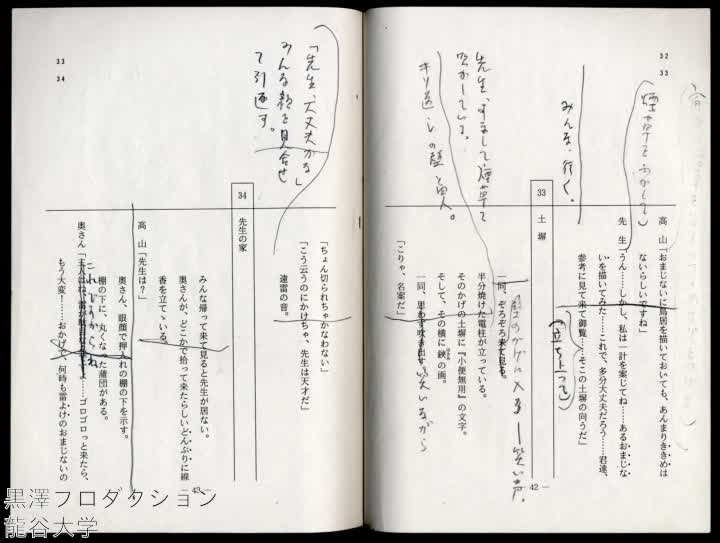 32
33
高　山「おまじないに鳥居を描いておいても、あんまりききめは
ないらしいですね」
先　生「うん……しかし、私は一計を案じてね……あるおまじな
いを描いてみた……これで、多分大丈夫だろう……君達、
参考に見て来て御覧……そこの土塀の向うだ」
(立ち上って)
みんな、行く。
33　土　塀
一同、ぞろぞろ来て見る。
半分焼けた電柱が立っている。
そのかげの土塀に『小便無用』の文字。
そして、その横に鋏の画。
一同、思わず吹き出す。
笑いながら
「こりゃ、名案だ」
先生、すまして煙草を
吹かしている。
— 42 —
33
34
「ちょん切られちゃかなわない」
「こう云うのにかけちゃ、先生は天才だ」
遠雷の音。
「先生、大丈夫かな」
みんな顔を見合せ
て引返す。
34　先生の家
みんな帰って来て見ると先生が居ない。
奥さんが、どこかで拾って来たらしいどんぶりに線
香を立てゝいる。
高　山「先生は？」
奥さん、眼顔で押入れの棚の下を示す。
棚の下に、丸くなった蒲団がある。
奥さん「主人はね、雷が駄目なんですよ……ゴロゴロっと来たら、
もう大変！……おかげで、何時も雷よけのおまじないの
— 43 —
黒澤プロダクション
龍谷大学